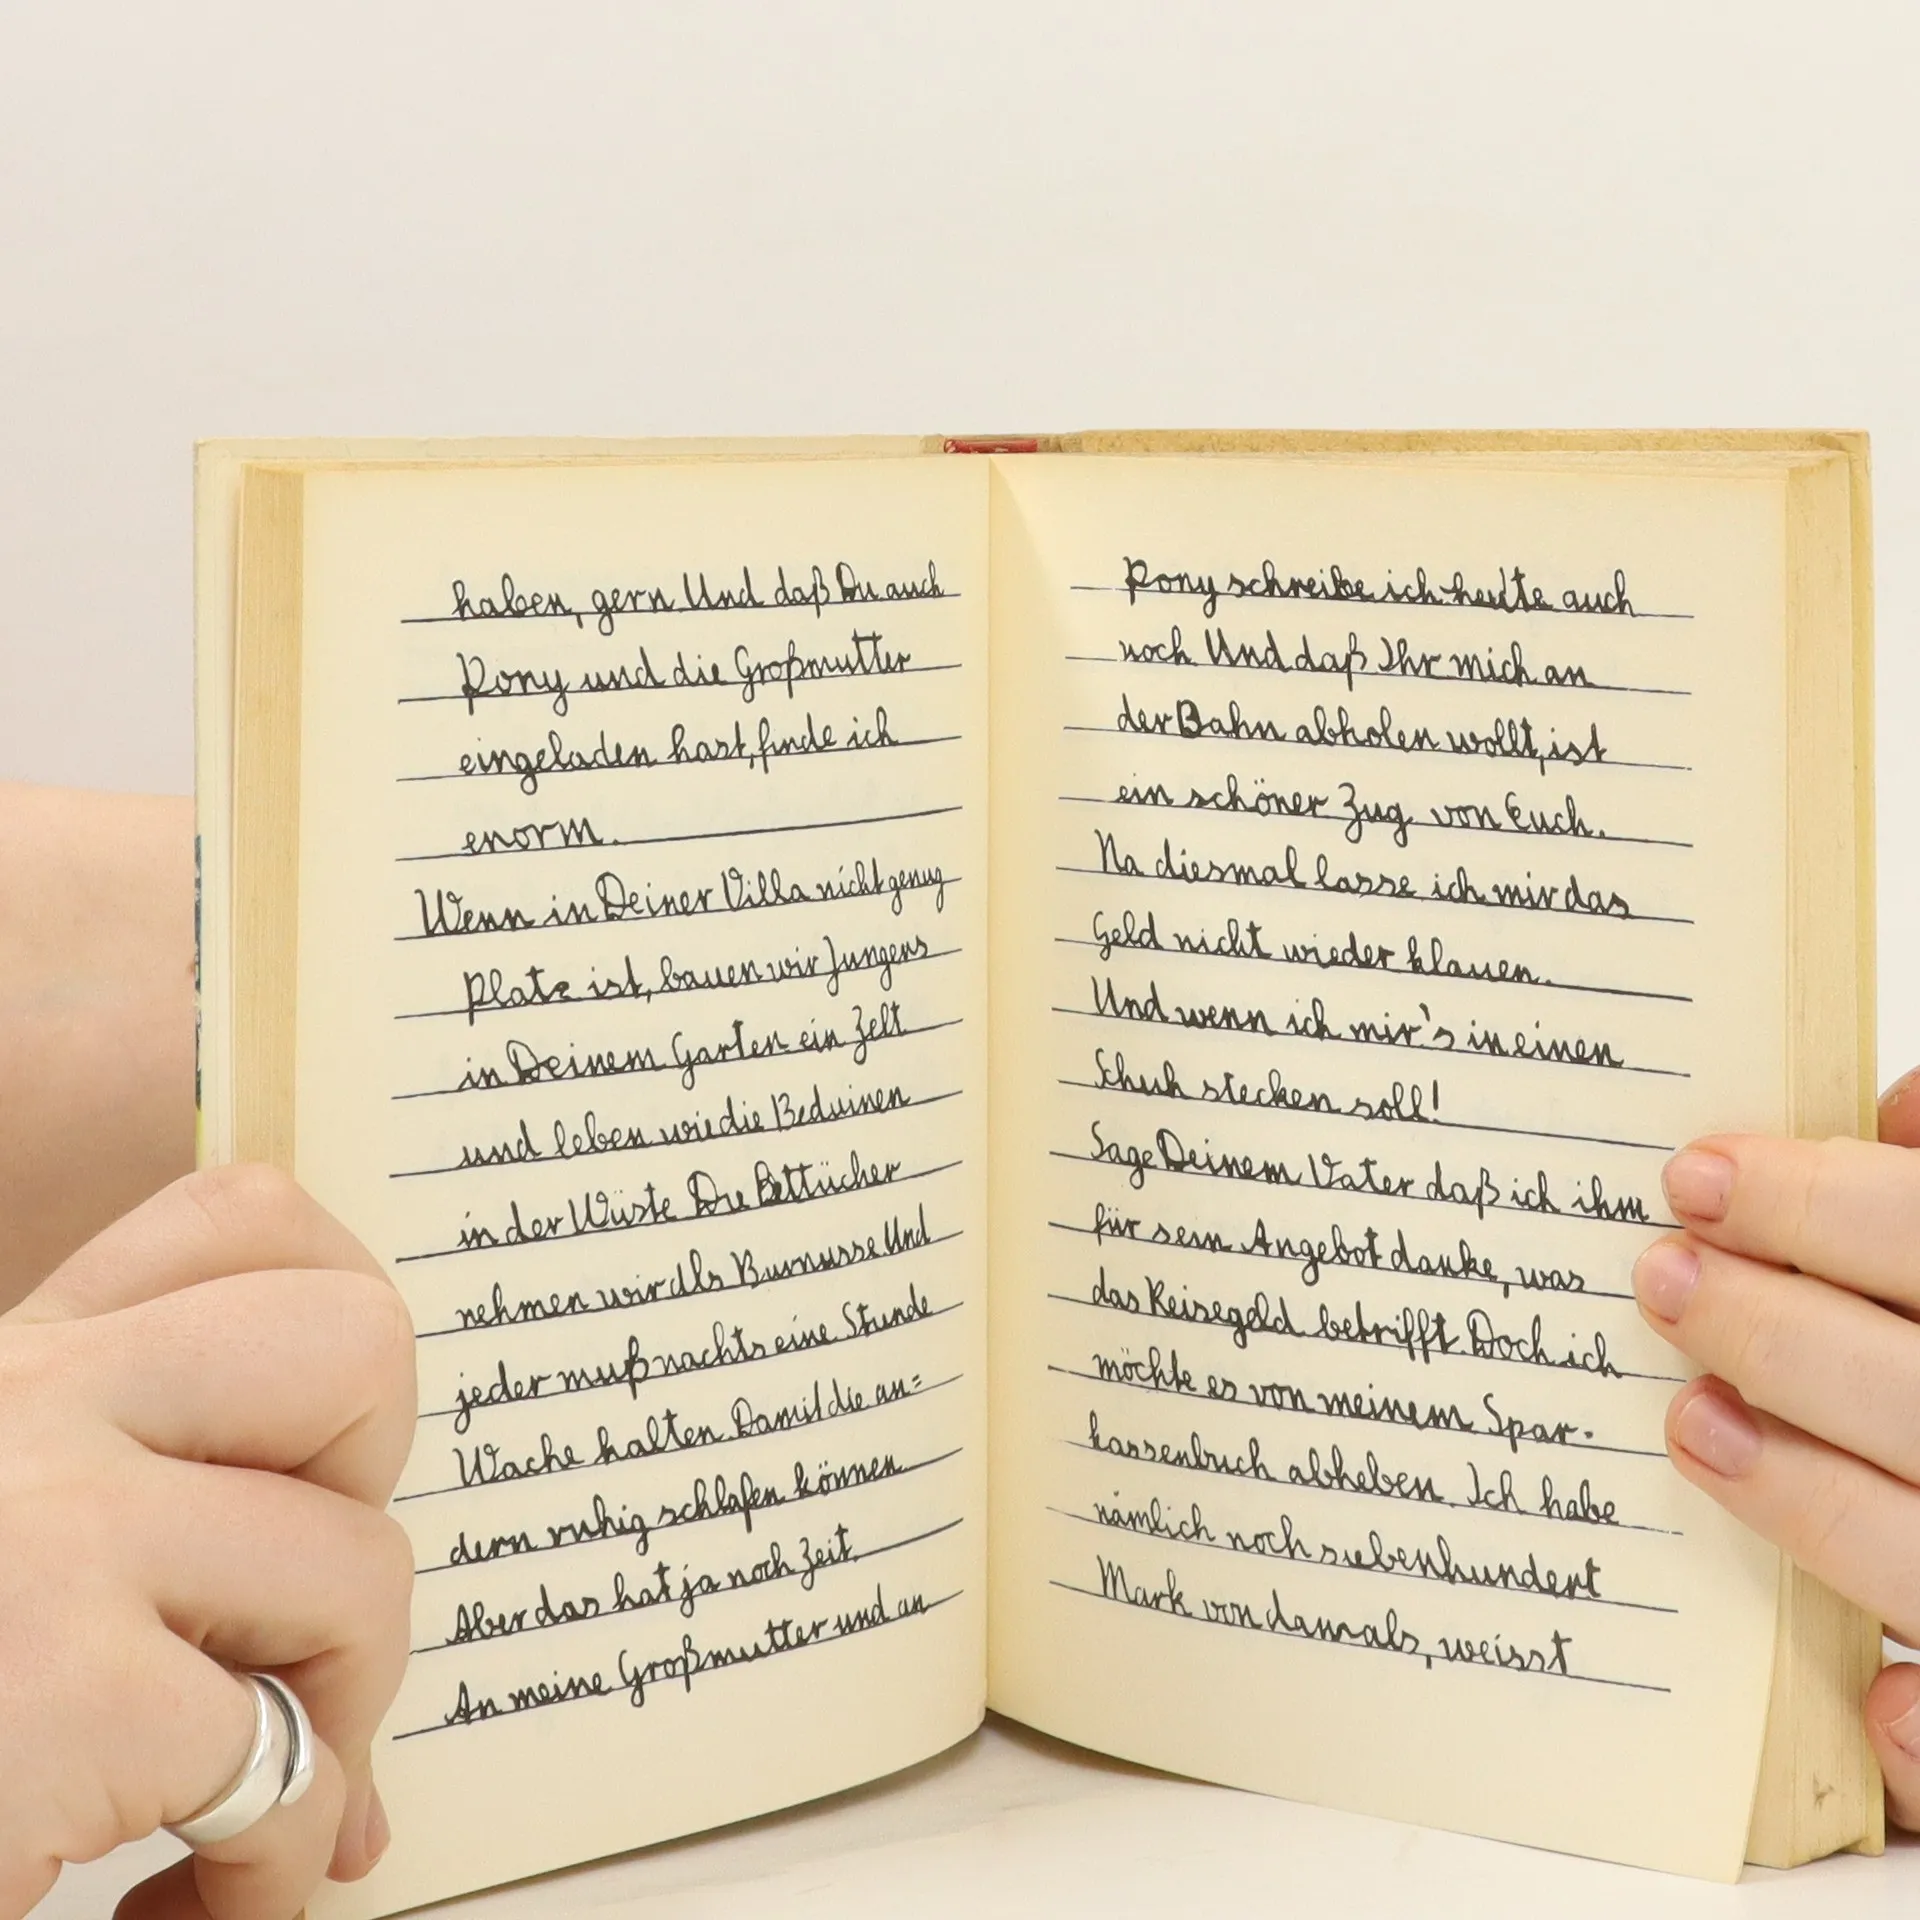 haben, gern. Und daß Du auch
Pony und die Großmutter
eingeladen hast, finde ich
enorm.
Wenn in Deiner Villa nicht genug
Platz ist, bauen wir Jungens
in Deinem Garten ein Zelt
und leben wie die Beduinen
in der Wüste. Die Bettücher
nehmen wir als Burnusse. Und
jeder muß nachts eine Stunde
Wache halten. Damit die an=
dern ruhig schlafen können.
Aber das hat ja noch Zeit.
An meine Großmutter und an
Pony schreibe ich heute auch
noch. Und daß Ihr mich an
der Bahn abholen wollt, ist
ein schöner Zug von Euch.
Na diesmal lasse ich mir das
Geld nicht wieder klauen.
Und wenn ich mir's in einen
Schuh stecken soll!
Sage Deinem Vater daß ich ihm
für sein Angebot danke, was
das Reisegeld betrifft. Doch ich
möchte es von meinem Spar-
kassenbuch abheben. Ich habe
nämlich noch siebenhundert
Mark von damals, weisst